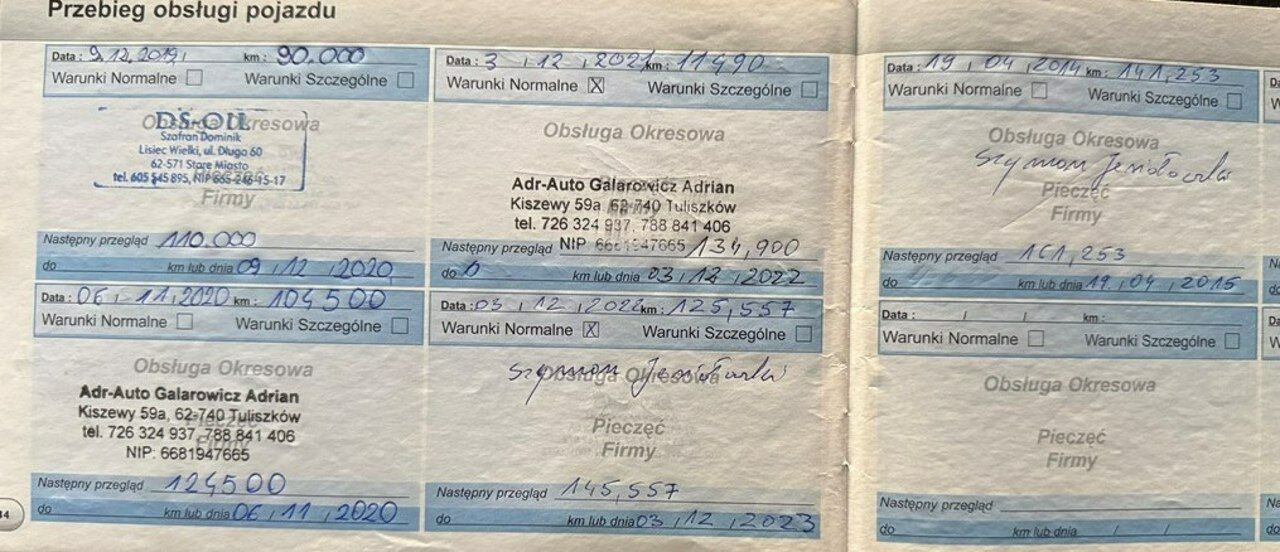 Przebieg obsługi pojazdu
Data : 9.12.2019, km : 90.000
Warunki Normalne Warunki Szczególne
Obsługa Okresowa
DS-OIL
Szafran Dominik
Lisiec Wielki, ul. Długa 60
62-571 Stare Miasto
tel. 605 545 895, NIP 665-246-15-17
Firmy
Następny przegląd 110.000
do km lub dnia 09 / 12 / 2020
Data : 06 / 11 / 2020 km : 104500
Warunki Normalne Warunki Szczególne
Obsługa Okresowa
Adr-Auto Galarowicz Adrian
Kiszewy 59a, 62-740 Tuliszków
tel. 726 324 937, 788 841 406
Pieczęć
NIP: 6681947665
Następny przegląd 124500
do km lub dnia 06 / 11 / 2020
Data : 3 / 12 / 2021 km : 11490
Warunki Normalne X Warunki Szczególne
Obsługa Okresowa
Adr-Auto Galarowicz Adrian
Kiszewy 59a, 62-740 Tuliszków
tel. 726 324 937, 788 841 406
Firmy
NIP: 6681947665
Następny przegląd 134,900
do km lub dnia 03 / 12 / 2022
Data : 03 / 12 / 2022 km : 125,557
Warunki Normalne X Warunki Szczególne
Obsługa Okresowa
Szymon
Pieczęć
Firmy
Następny przegląd 145,557
do km lub dnia 03 / 12 / 2023
Data : 19 / 04 / 2014 km : 141,253
Warunki Normalne Warunki Szczególne
Obsługa Okresowa
Szymon
Pieczęć
Firmy
Następny przegląd 161,253
do km lub dnia 19 / 04 / 2015
Data : / / km :
Warunki Normalne Warunki Szczególne
Obsługa Okresowa
Pieczęć
Firmy
Następny przegląd
do km lub dnia / /